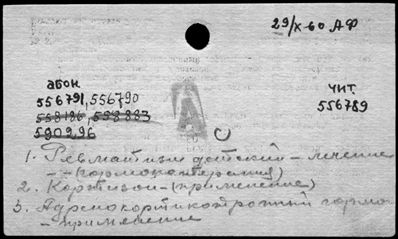 29/X-60 АФ
абон
556791, 556790
чит.
556789
558126, 558883
590296
А
1. Ревматизм детский - лечение
- (гормонотерапия)
2. Кортизон - (применение)
3. Адренокортикотропный гормо
- применение